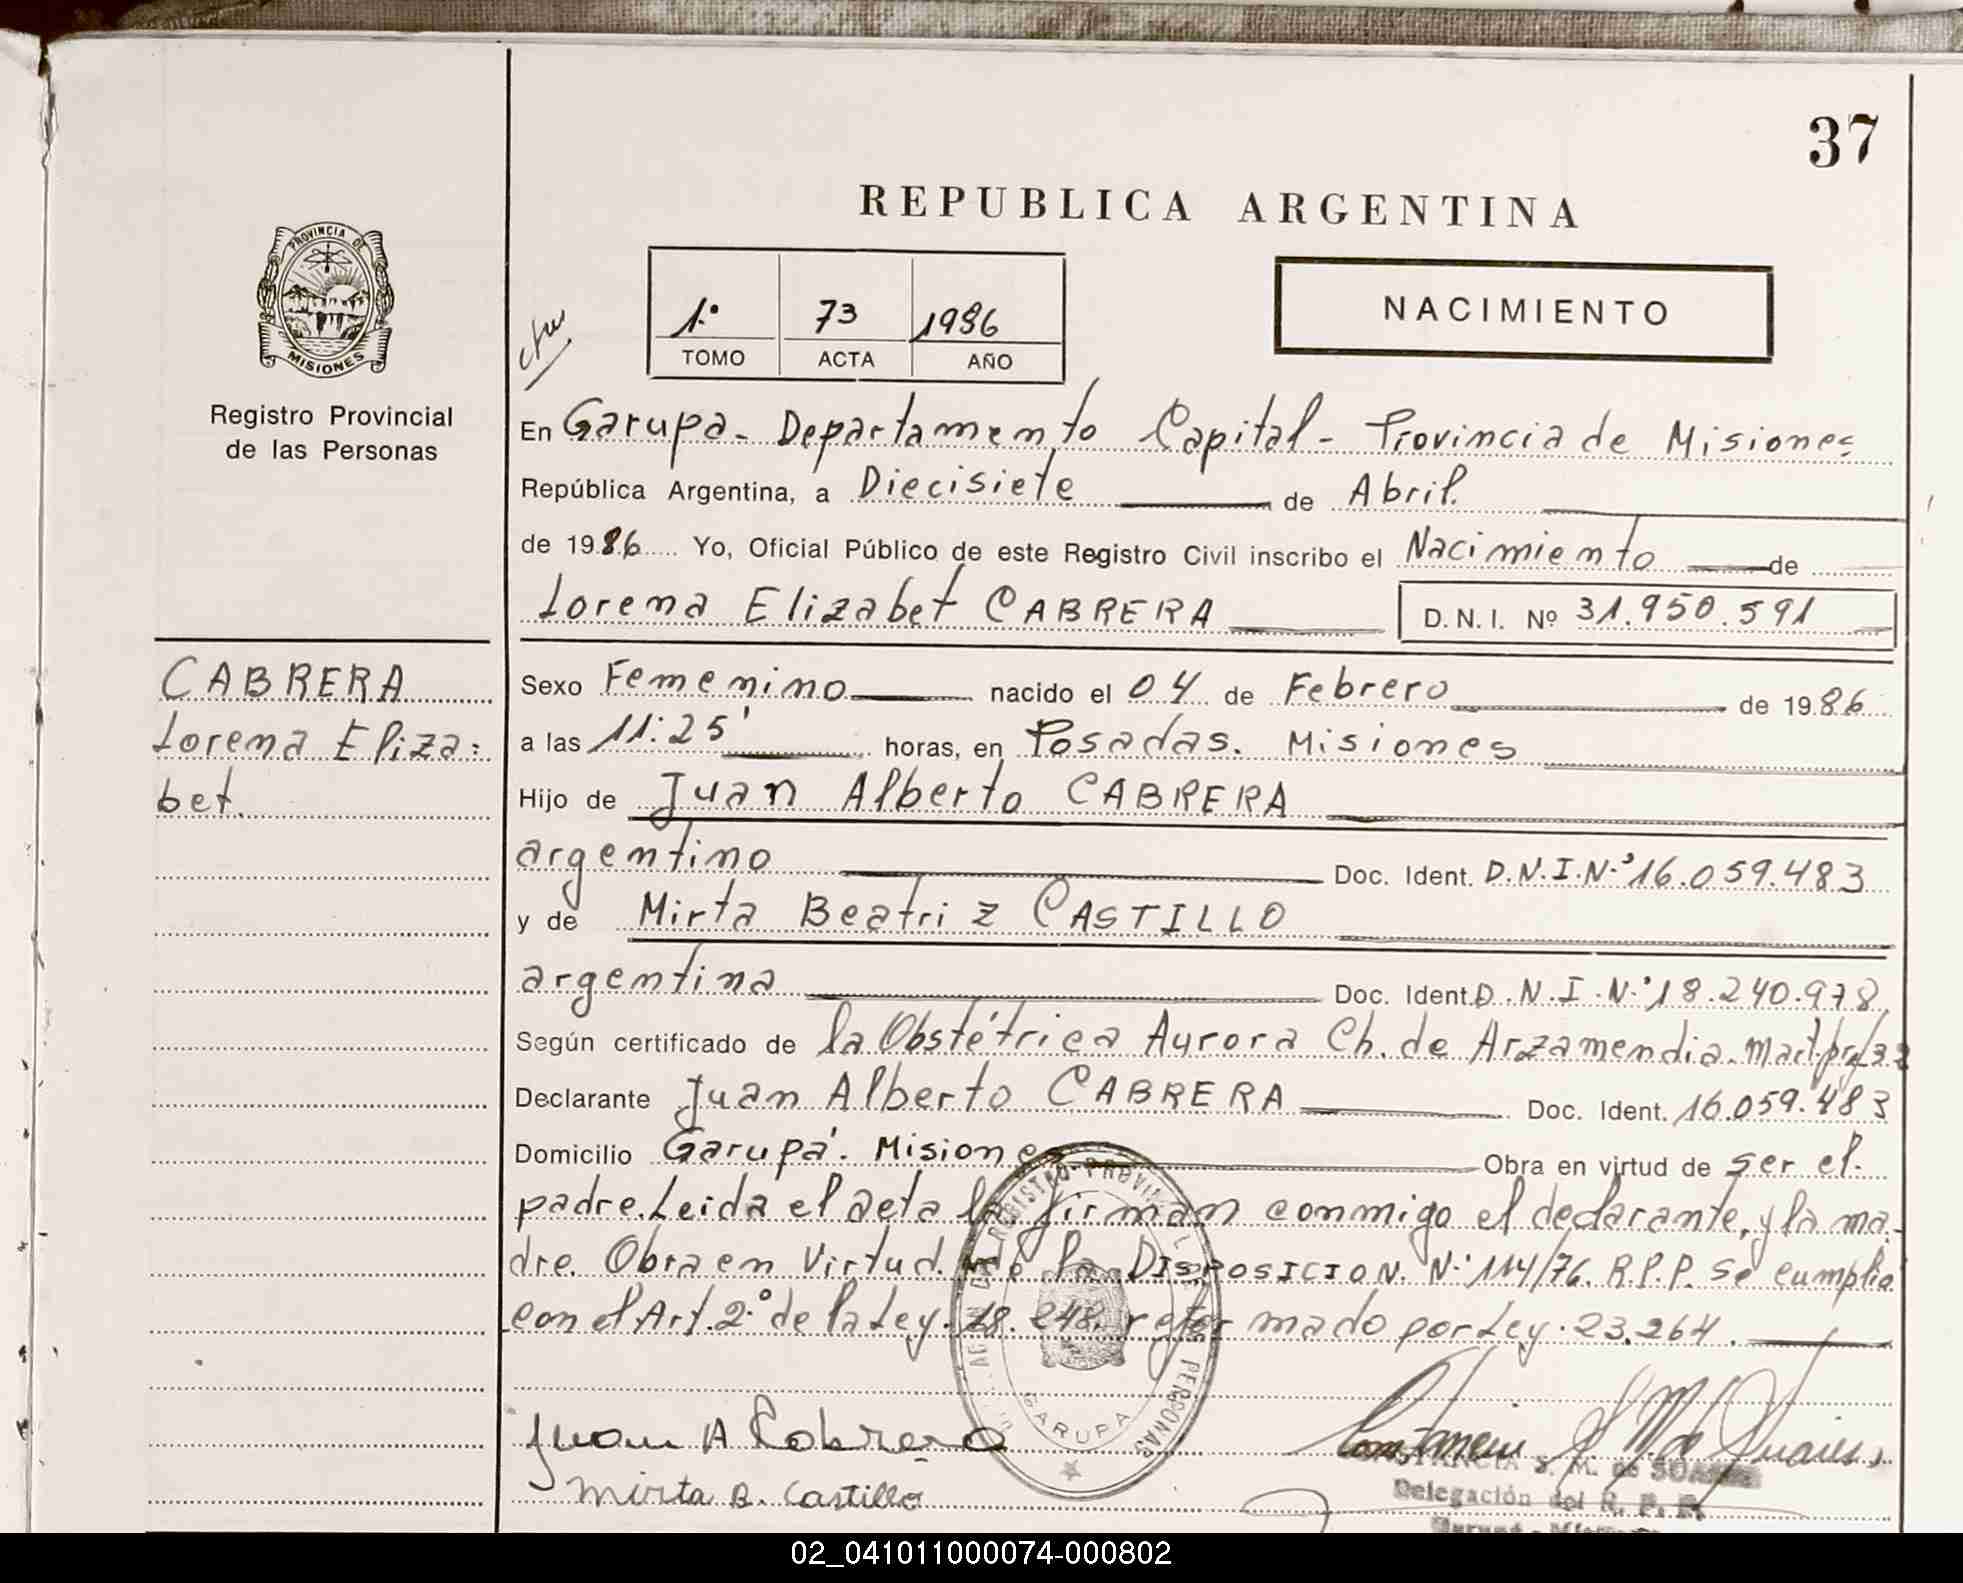 37
REPUBLICA ARGENTINA
PROVINCIA DE
MISIONES
Registro Provincial
de las Personas
1º 73 1986
TOMO ACTA AÑO
NACIMIENTO
En Garupa - Departamento Capital - Provincia de Misiones
República Argentina, a Diecisiete de Abril.
de 1986 Yo, Oficial Público de este Registro Civil inscribo el Nacimiento de
Lorena Elizabet CABRERA D.N.I. Nº 31.950.591
CABRERA
Lorena Eliza=
bet.
Sexo Femenino nacido el 04 de Febrero de 1986
a las 11:25' horas, en Posadas. Misiones
Hijo de Juan Alberto CABRERA
argentino Doc. Ident. D.N.I.N.º 16.059.483
y de Mirta Beatriz CASTILLO
argentina Doc. Ident. D.N.I.N.º 18.240.978
Según certificado de la Obstétrica Aurora Ch. de Arzamendia.
Declarante Juan Alberto CABRERA Doc. Ident. 16.059.483
Domicilio Garupá. Misiones Obra en virtud de ser el
padre. Leida el acta la firman conmigo el declarante, y la ma-
dre. Obra en Virtud de la DISPOSICION. N.º 114/76. R.P.P. Se cumplia
con el Art. 2º de la Ley. 18.248. reformado por Ley. 23.264.
REGISTRO PROVINCIAL DE PERSONAS
GARUPA
Juan A Cabrera
Mirta B. Castillo
S. M. de SUARES
Delegación del R. P. P.
02_041011000074-000802